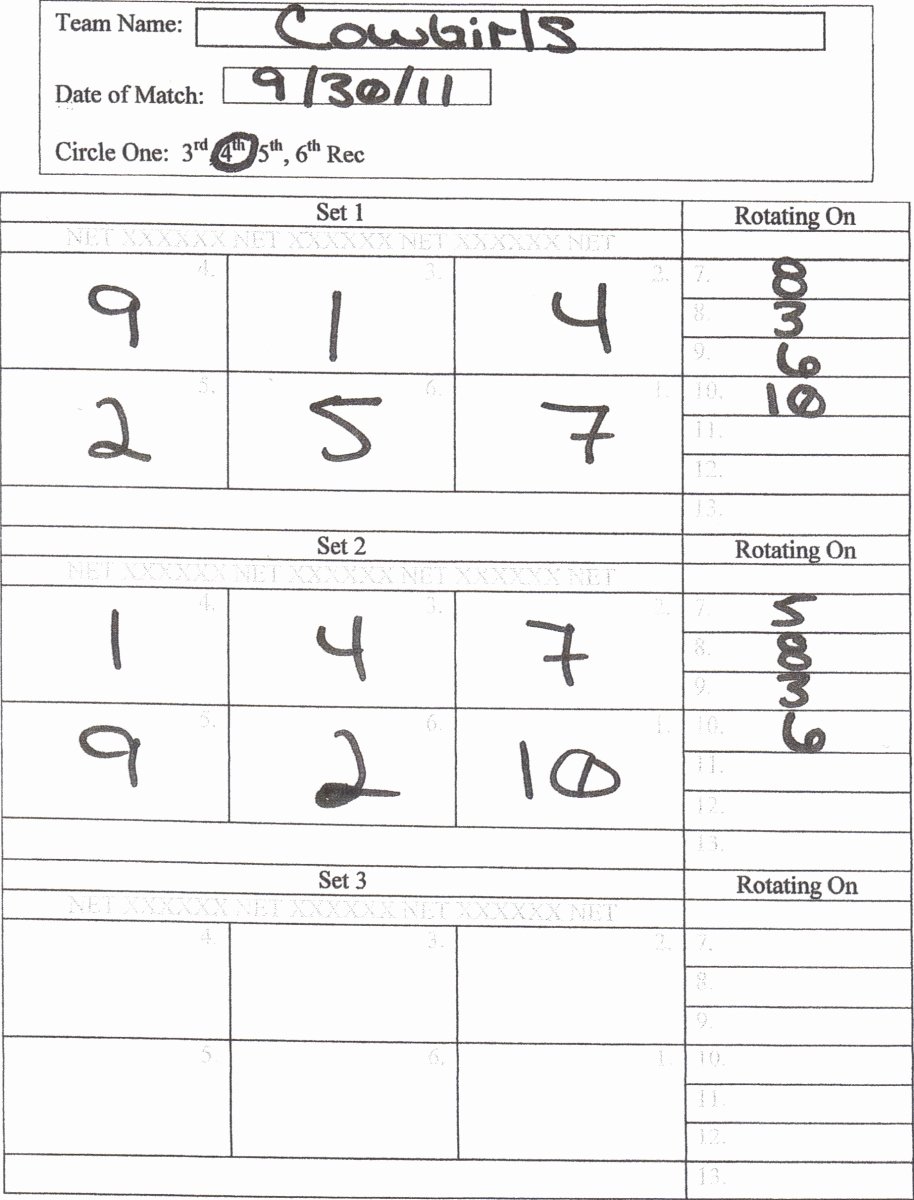 Team Name: Cowgirls
Date of Match: 9/30/11
Circle One: 3rd, 4th, 5th, 6th Rec
Set 1 Rotating On
NET XXXXXX NET XXXXXX NET XXXXXX NET
4. 3. 2. 7. 8
9 1 4 8. 3
9. 6
5. 6. 1. 10. 10
2 5 7 11.
12.
13.
Set 2 Rotating On
NET XXXXXX NET XXXXXX NET XXXXXX NET
4. 3. 2. 7. 5
1 4 7 8. 8
9. 3
5. 6. 1. 10. 6
9 2 10 11.
12.
13.
Set 3 Rotating On
NET XXXXXX NET XXXXXX NET XXXXXX NET
4. 3. 2. 7.
8.
9.
5. 6. 1. 10.
11.
12.
13.